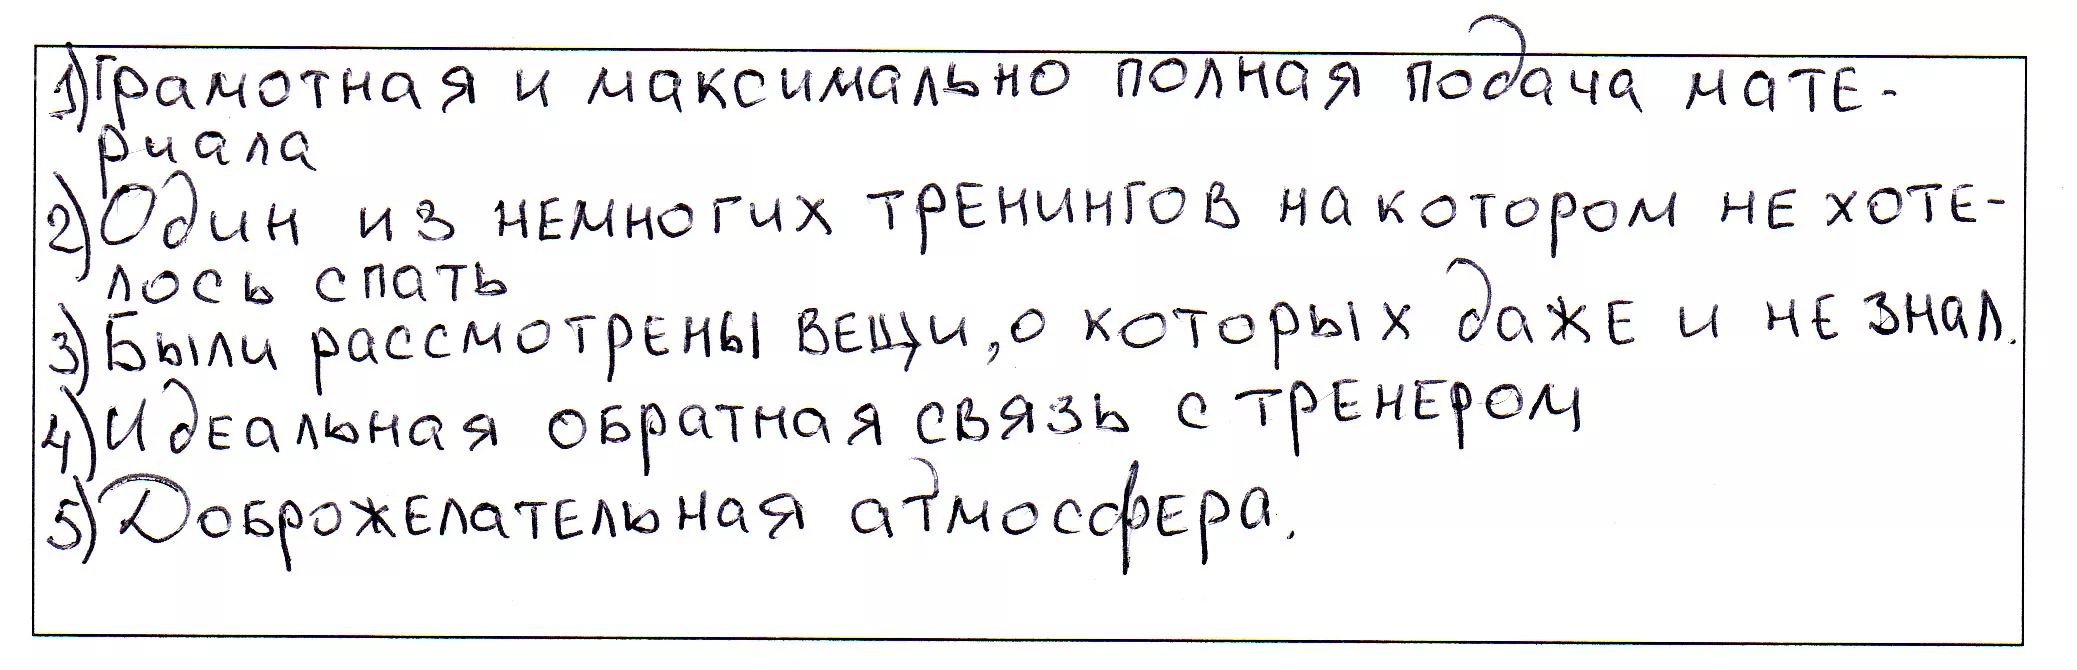 1) Грамотная и максимально полная подача мате-
риала
2) Один из немногих тренингов на котором не хоте-
лось спать
3) Были рассмотрены вещи, о которых даже и не знал.
4) Идеальная обратная связь с тренером
5) Доброжелательная атмосфера.